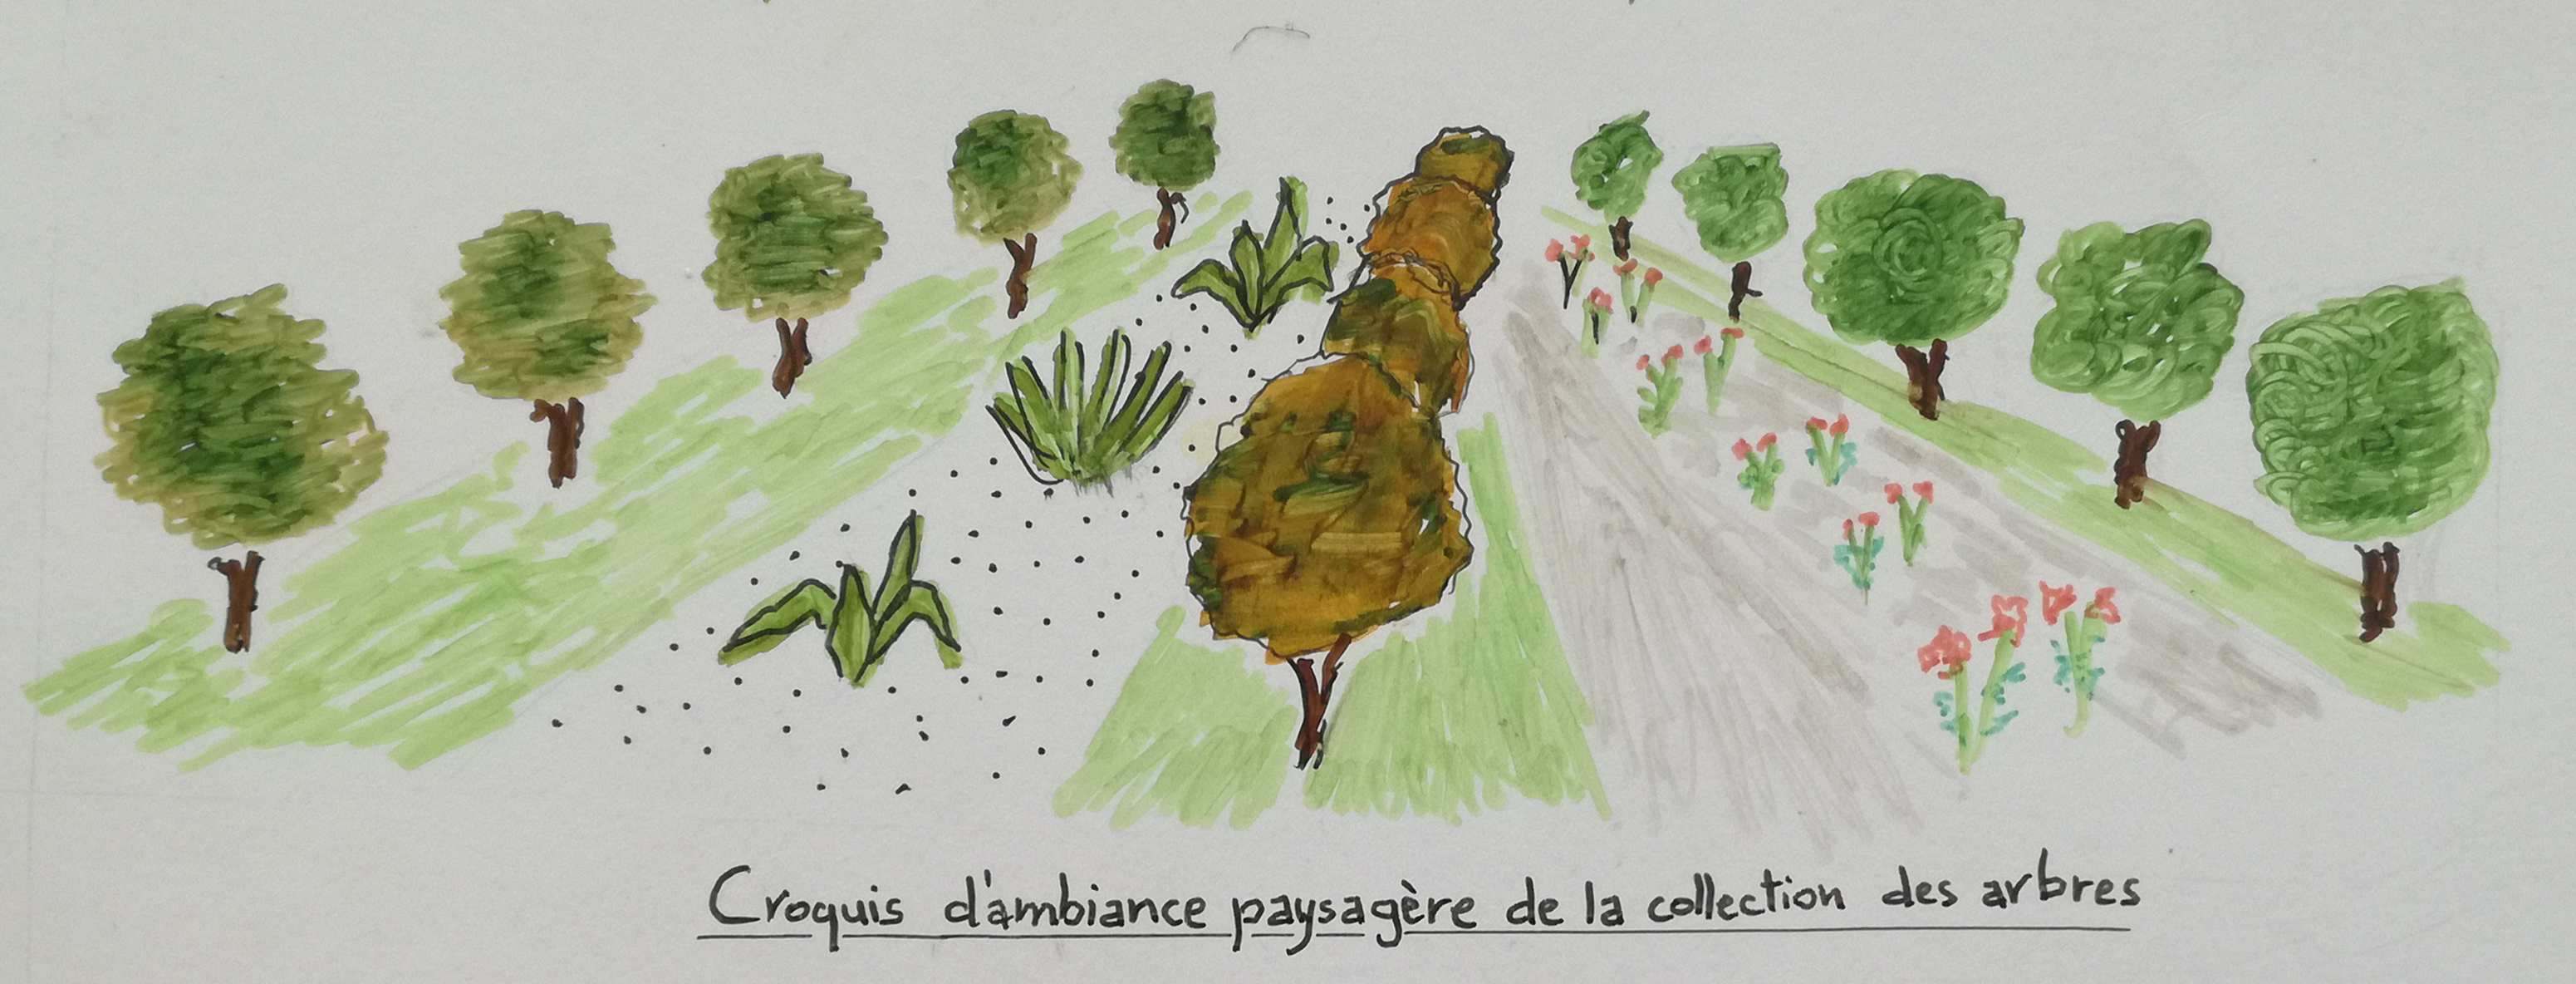 Croquis d'ambiance paysagère de la collection des arbres